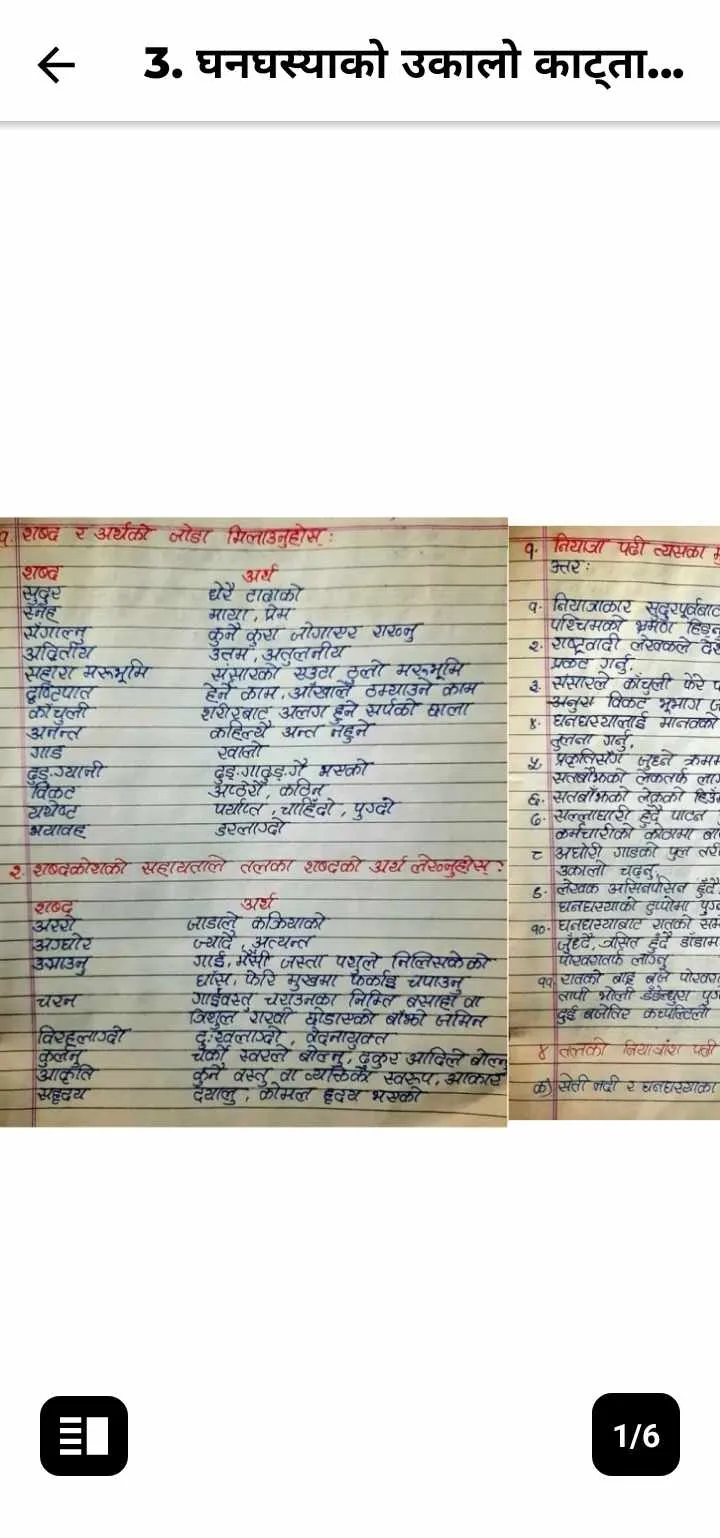 3. घनघस्याको उकालो काट्ता...
१. शब्द र अर्थको जोडा मिलाउनुहोस् :
शब्द अर्थ
सुदूर धेरै टाढाको
स्नेह माया, प्रेम
सँगाल्नु कुनै कुरा जोगाएर राख्नु
अद्वितीय उत्तम, अतुलनीय
सहारा मरूभूमि संसारको एउटा ठुलो मरूभूमि
दृष्टिपात हेर्ने काम, आँखाले ठम्याउने काम
काँचुली शरीरबाट अलग हुने सर्पको छाला
अनन्त कहिल्यै अन्त नहुने
गाड खोलो
दुङ्ग्यानी ढुङ्गाढुङ्गै भएको
विकट अप्ठेरो, कठिन
यथेष्ट पर्याप्त, चाहिँदो, पुग्दो
भयावह डरलाग्दो
२. शब्दकोशको सहायताले तलका शब्दको अर्थ लेख्नुहोस् :
शब्द अर्थ
अररो जाडाले कक्रिएको
अघोर ज्यादै, अत्यन्त
उग्राउनु गाई, भैंसी जस्ता पशुले निलिसकेको
घाँस, फेरि मुखमा फर्काइ चपाउनु
चरन गाईवस्तु चराउनका निम्ति बसाहाँ वा
त्रिशुल राखी छोडाएको बाँझो जमिन
विरहलाग्दो दुःखलाग्दो, वेदनायुक्त
कुर्लनु चर्को स्वरले बोल्नु, ढुकुर आदिले बोल्नु
आकृति कुनै वस्तु वा व्यक्तिको स्वरूप, आकार
सहृदय दयालु, कोमल हृदय भएको
१. नियात्रा पढी त्यसका
उत्तर :
१. नियात्राकार सुदूरपूर्वबाट
पश्चिमको भूमेठो हिँड्न
२. राष्ट्रवादी लेखकले देश
प्रकट गर्नु,
३. संसारले काँचुली फेरे
अनुरा विकट भूभाग
४. घनघस्यालाई मानवको
तुलना गर्नु,
५. प्रकृतिसँग जुध्ने क्रममा
सतबाँझको लेकतर्फ
६. सतबाँझको लेकको हिउँ
७. सल्लाघारी हुँदै पाटन
कर्मचारीको कोठामा
८ अघोरी गाडको पुल तरी
उकालो चढ्नु,
९. लेखक असिनपसिन हुँदै
घनघस्याको टुप्पोमा
१०. घनघस्याबाट रातको
जुँध्दै, त्रसित हुँदै डाँडामा
पोखरातर्फ लाग्नु
११. रातको बाह्र बजे पोखरा
तापी भोली डँडेल्धुरा
दुई बजेतिर कञ्चटिलो
४ तलको नियात्रांश पढी
क) सेती नदी र घनघस्याका
1/6